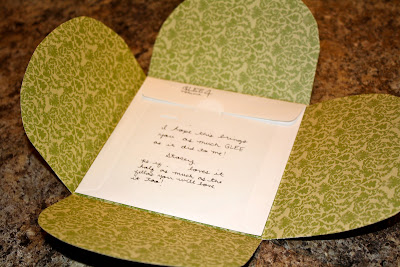 I hope this brings
you as much GLEE
as it did to me!
Stacey
loves it
half as much as the
you will love
it too!